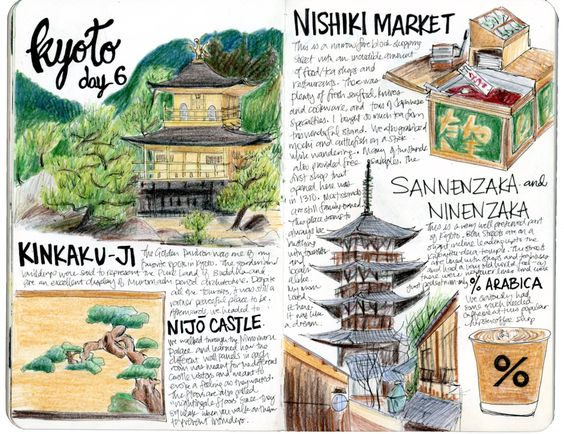 kyoto
day 6
KINKAKU-JI
The Golden Pavilion was one of my
favorite spots in Kyoto. The gardens and
buildings were said to represent the Pure Land of Buddha and
are an excellent display of Muromachi period architecture. Despite
all the tourists, it was still a
rather peaceful place to be.
Afterwards we headed to
NIJŌ CASTLE.
We walked through the Ninomaru
Palace and learned how the
different wall panels in each
room was meant for the different
castle visitors and meant to
evoke a feeling as they waited.
The floors are also called
"nightingale floors" since they
squeak when you walk on them
to prevent intruders.
NISHIKI MARKET
This is a narrow, five block shopping
street with an incredible amount
of food/tea shops and
restaurants. There was
plenty of fresh seafood, knives
and cookware, and tons of Japanese
specialties. I bought so much tea from
this wonderful stand. We also grabbed
mochi and cuttlefish on a stick
while wandering. Many of the stands
also provided free samples. The
first shop that
opened here was
in 1310. Most stands
are still family owned.
This place seems to
always be
bustling
with
and
locals
alike.
used
it here
It was like
a dream.
SANNENZAKA and
NINENZAKA
This is a very well preserved part
of Kyoto. Both streets are on a
slight incline leading up to the
The street
shops and
and had a very old world feel
there were
% ARABICA
We
some much needed
caffeine at this popular
coffee shop
%